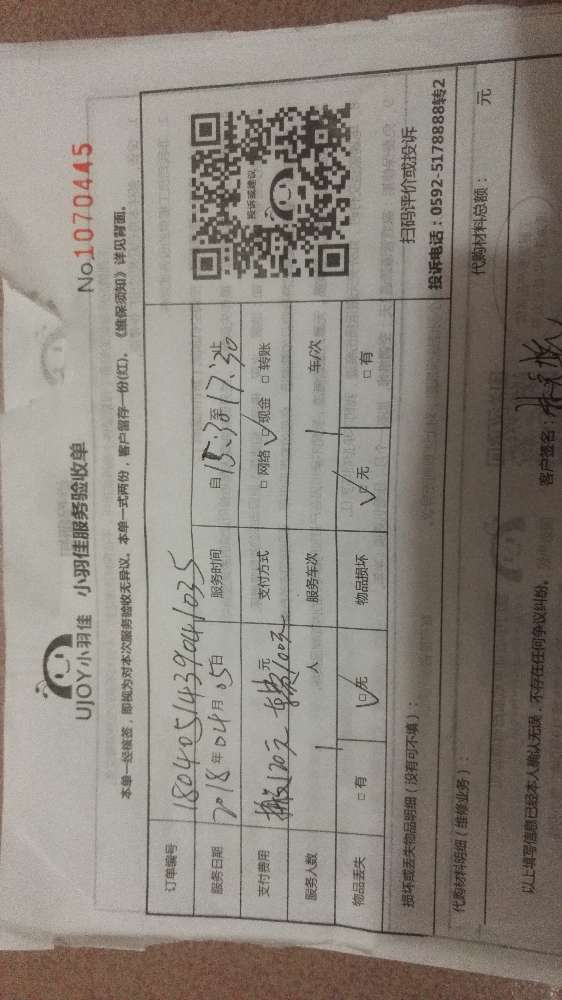 UJOY小羽佳 小羽佳服务验收单 No.1070445
本单一经核签，即视为对本次服务验收无异议。本单一式两份，客户留存一份(红)，《维保须知》详见背面。
订单编号 180405143904041035
服务日期 2018年04月05日 服务时间 自15:30至17:30止
支付费用 搬运120元 100元 支付方式 □网络 ☑现金 □转账
服务人数 1人 服务车次 1车/次
物品丢失 □有 ☑无 物品损坏 ☑无 □有
投诉或建议
扫码评价或投诉
损坏或丢失物品明细（没有可不填）：
投诉电话：0592-5178888转2
代购材料明细（维修业务）： 代购材料总额： 元
以上填写信息已经本人确认无误，不存在任何争议纠纷。 客户签名：